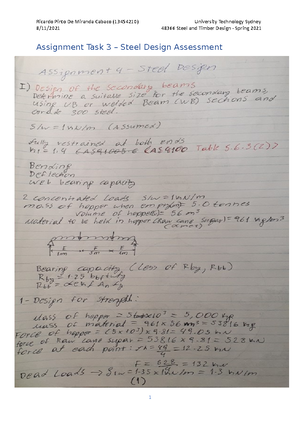 Ricardo Pinto De Miranda Cabaco (13454210) University Technology Sydney
8/11/2021 48366 Steel and Timber Design - Spring 2021
Assignment Task 3 – Steel Design Assessment
Assignment 4 - Steel Design
1) Design of the secondary beams
Determine a suitable size for the secondary beams
using UB or welded Beam (WB) sections and
grade 300 steel.
S/w = 1 kN/m (Assumed)
fully restrained at both ends
AS4100 Table 5.6.3(2)?
Bending
Deflection
web bearing capacity
2 concentrated loads S/w = 1 kN/m
mass of hopper when empty = 5,0 tonnes
Volume of hopper = 56 m³
Material to be held in hopper = 961 kg/m³
Bearing capacity (Less of Rby, Rbb)
1 - Design for Strength:
Mass of hopper = 5,000 kg
Mass of material = 961 × 56 m³ = 53816 kg
Force of hopper = 9.81 = 49.05 kN
Force of Raw cane sugar = 53816 × 9.81 = 528 kN
Force at each point: = 12.25 kN
F = 528/4 = 132 kN
Dead Loads
(1)
1